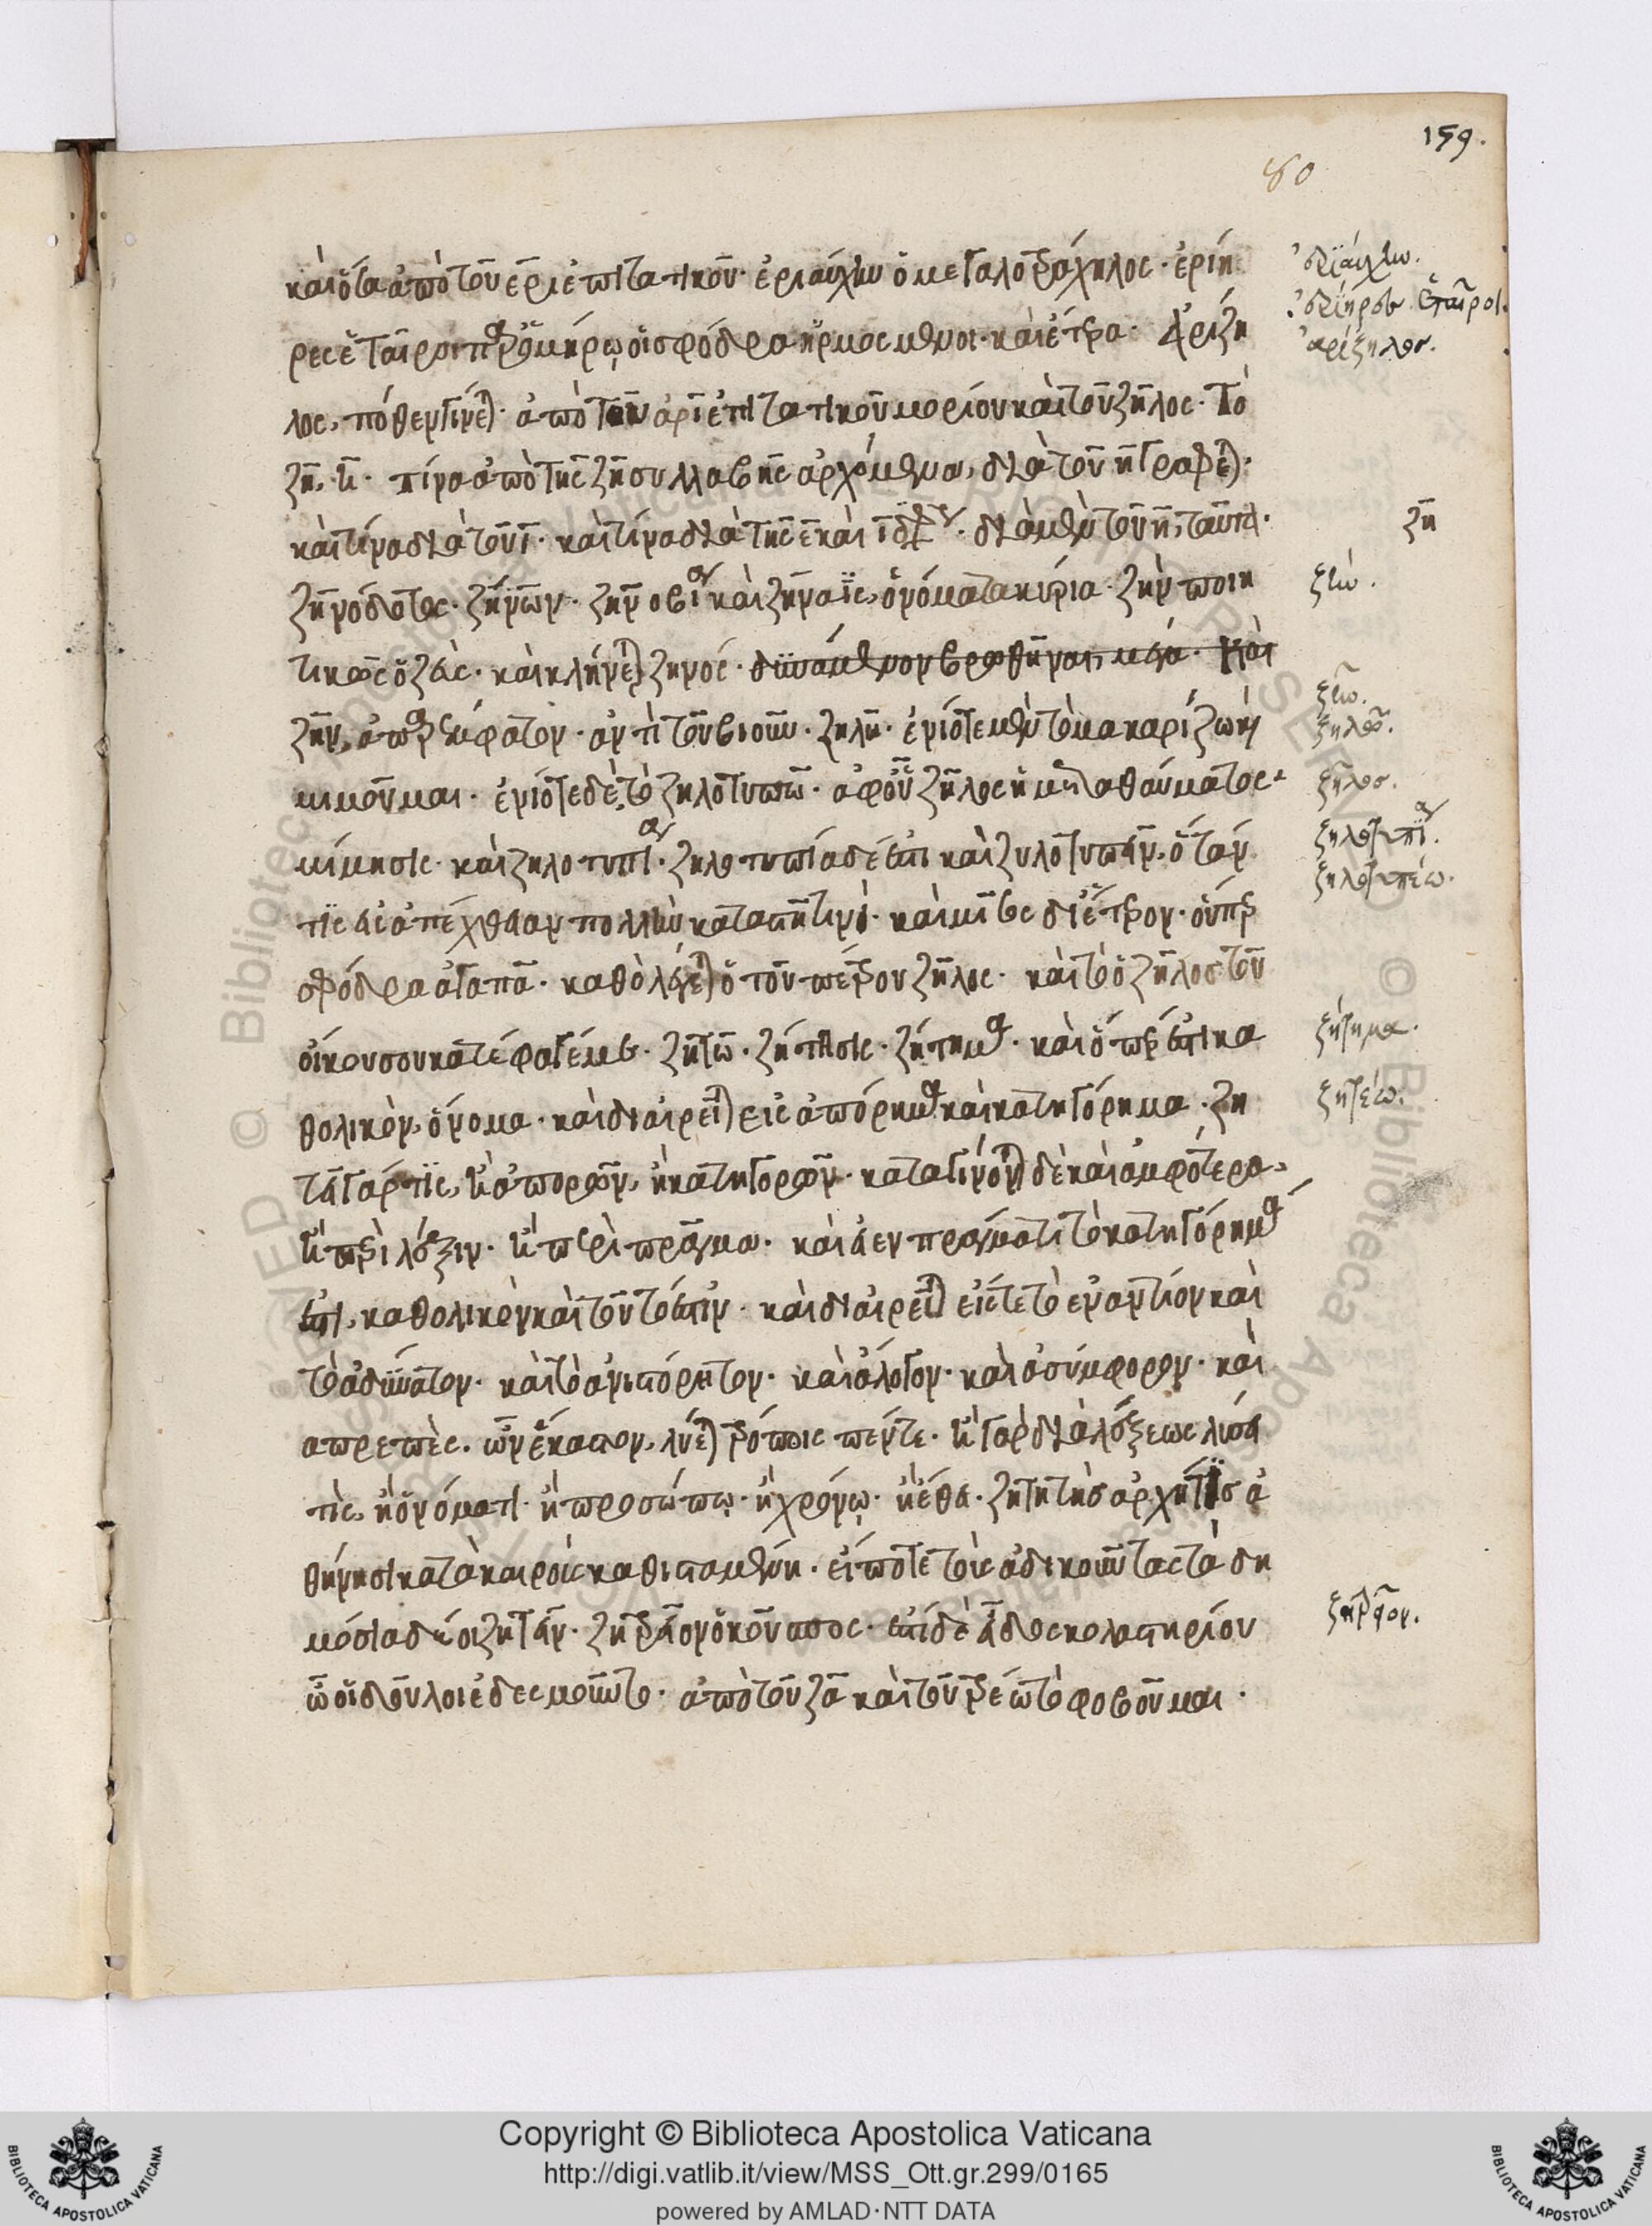 159.
80
καὶ ὅσα ἀπὸ τοῦ ερι ἐπιτατικοῦ· ἐριαύχην ὁ μεγαλοτράχηλος· ἐρίη
ρες ἑταῖροι παρ' ὁμήρῳ οἱ σφόδρα ἡρμοσμένοι· καὶ ἕτερα· Ἀρίζη
λος, πόθεν γίνεται· ἀπὸ τοῦ αρι ἐπιτατικοῦ μορίου καὶ τοῦ ζῆλος· Τὸ
ζῆ, τινα ἀπὸ τῆς ζη συλλαβῆς ἀρχόμενα, διὰ τοῦ η γράφεται·
καὶ τινα διὰ τοῦ ι· καὶ τινα διὰ τῆς ε καὶ ι διφθόγγου· διὰ μὲν τοῦ η, ταῦτα·
ζηνόδοτος· ζήνων· ζηνοβία καὶ ζηναῒς, ὀνόματα κύρια· ζὴν ποιη
τικῶς ὁ ζεὺς· καὶ κλίνεται ζηνός· δυνάμενον βρωθῆναι, μέγα· Καὶ
ζῆν, ἀπαρέμφατον· ἀντὶ τοῦ βιοῦν· ζηλῶ· ἐνίοτε μὲν τὸ μακαρίζω ἢ
μιμοῦμαι· ἐνίοτε δὲ, τὸ ζηλοτυπῶ· ἀφ' οὗ ζῆλος ἡ μετὰ θαύματος
μίμησις· καὶ ζηλοτυπία· ζηλοτυπία δέ ἐστι καὶ ζηλοτυπεῖν, ὅταν
τὶς εἰς ἀπέχθειαν πολλὴν καταστῇ τινὶ· καὶ μῖσος δι' ἕτερον· ὅνπερ
σφόδρα ἀγαπᾶ· καθὸ λέγεται ὁ τοῦ πέτρου ζῆλος· καὶ τὸ ὁ ζῆλος τοῦ
οἴκου σου κατέφαγέ με· ζητῶ· ζήτησις· ζήτημα· καὶ ὅπερ ἐστὶ κα
θολικὸν ὄνομα· καὶ διαιρεῖται εἰς ἀπόρημα καὶ κατηγόρημα· ζη
τεῖ γάρ τις, ἢ ἀπορῶν, ἢ κατηγορῶν· καταγίνονται δὲ καὶ ἀμφότερα,
ἢ περὶ λέξιν· ἢ περὶ πρᾶγμα· καὶ εἰ ἐν πράγματι τὸ κατηγόρημά
ἐστι, καθολικὸν καὶ τοῦτό ἐστιν· καὶ διαιρεῖται εἴς τε τὸ ἐναντίον καὶ
τὸ ἀδύνατον· καὶ τὸ ἀνιστόρητον· καὶ ἄλογον· καὶ ἀσύμφορον· καὶ
ἀπρεπὲς· ὧν ἕκαστον, λύεται τρόποις πέντε· ἢ γὰρ διὰ λέξεως λύσει
τὶς, ἢ ὀνόματι· ἢ προσώπῳ· ἢ χρόνῳ· ἢ ἔθει· ζητητὴς ἀρχή τις ἀ
θήνησι κατὰ καιροὺς καθισταμένη· εἴποτε τοὺς ἀδικοῦντας τὰ δη
μόσια δέοι ζητεῖν· ζητρεῖον ὀκρύπτος· ἐστὶ δὲ εἶδος κολαστηρίου
ὧ οἱ δοῦλοι ἐδεσμοῦντο· ἀπὸ τοῦ ζα καὶ τοῦ τρέω τὸ φοβοῦμαι·
ἐριαύχην.
ἐρίηρες ἑταῖροι.
ἀρίζηλος.
ζῆ
ζήν.
ζῆν.
ζηλῶ.
ζῆλος.
ζηλοτυπία.
ζηλοτυπέω.
ζήτημα.
ζητέω.
ζητρεῖον.
Copyright © Biblioteca Apostolica Vaticana
http://digi.vatlib.it/view/MSS_Ott.gr.299/0165
powered by AMLAD·NTT DATA
BIBLIOTECA APOSTOLICA VATICANA
BIBLIOTECA APOSTOLICA VATICANA